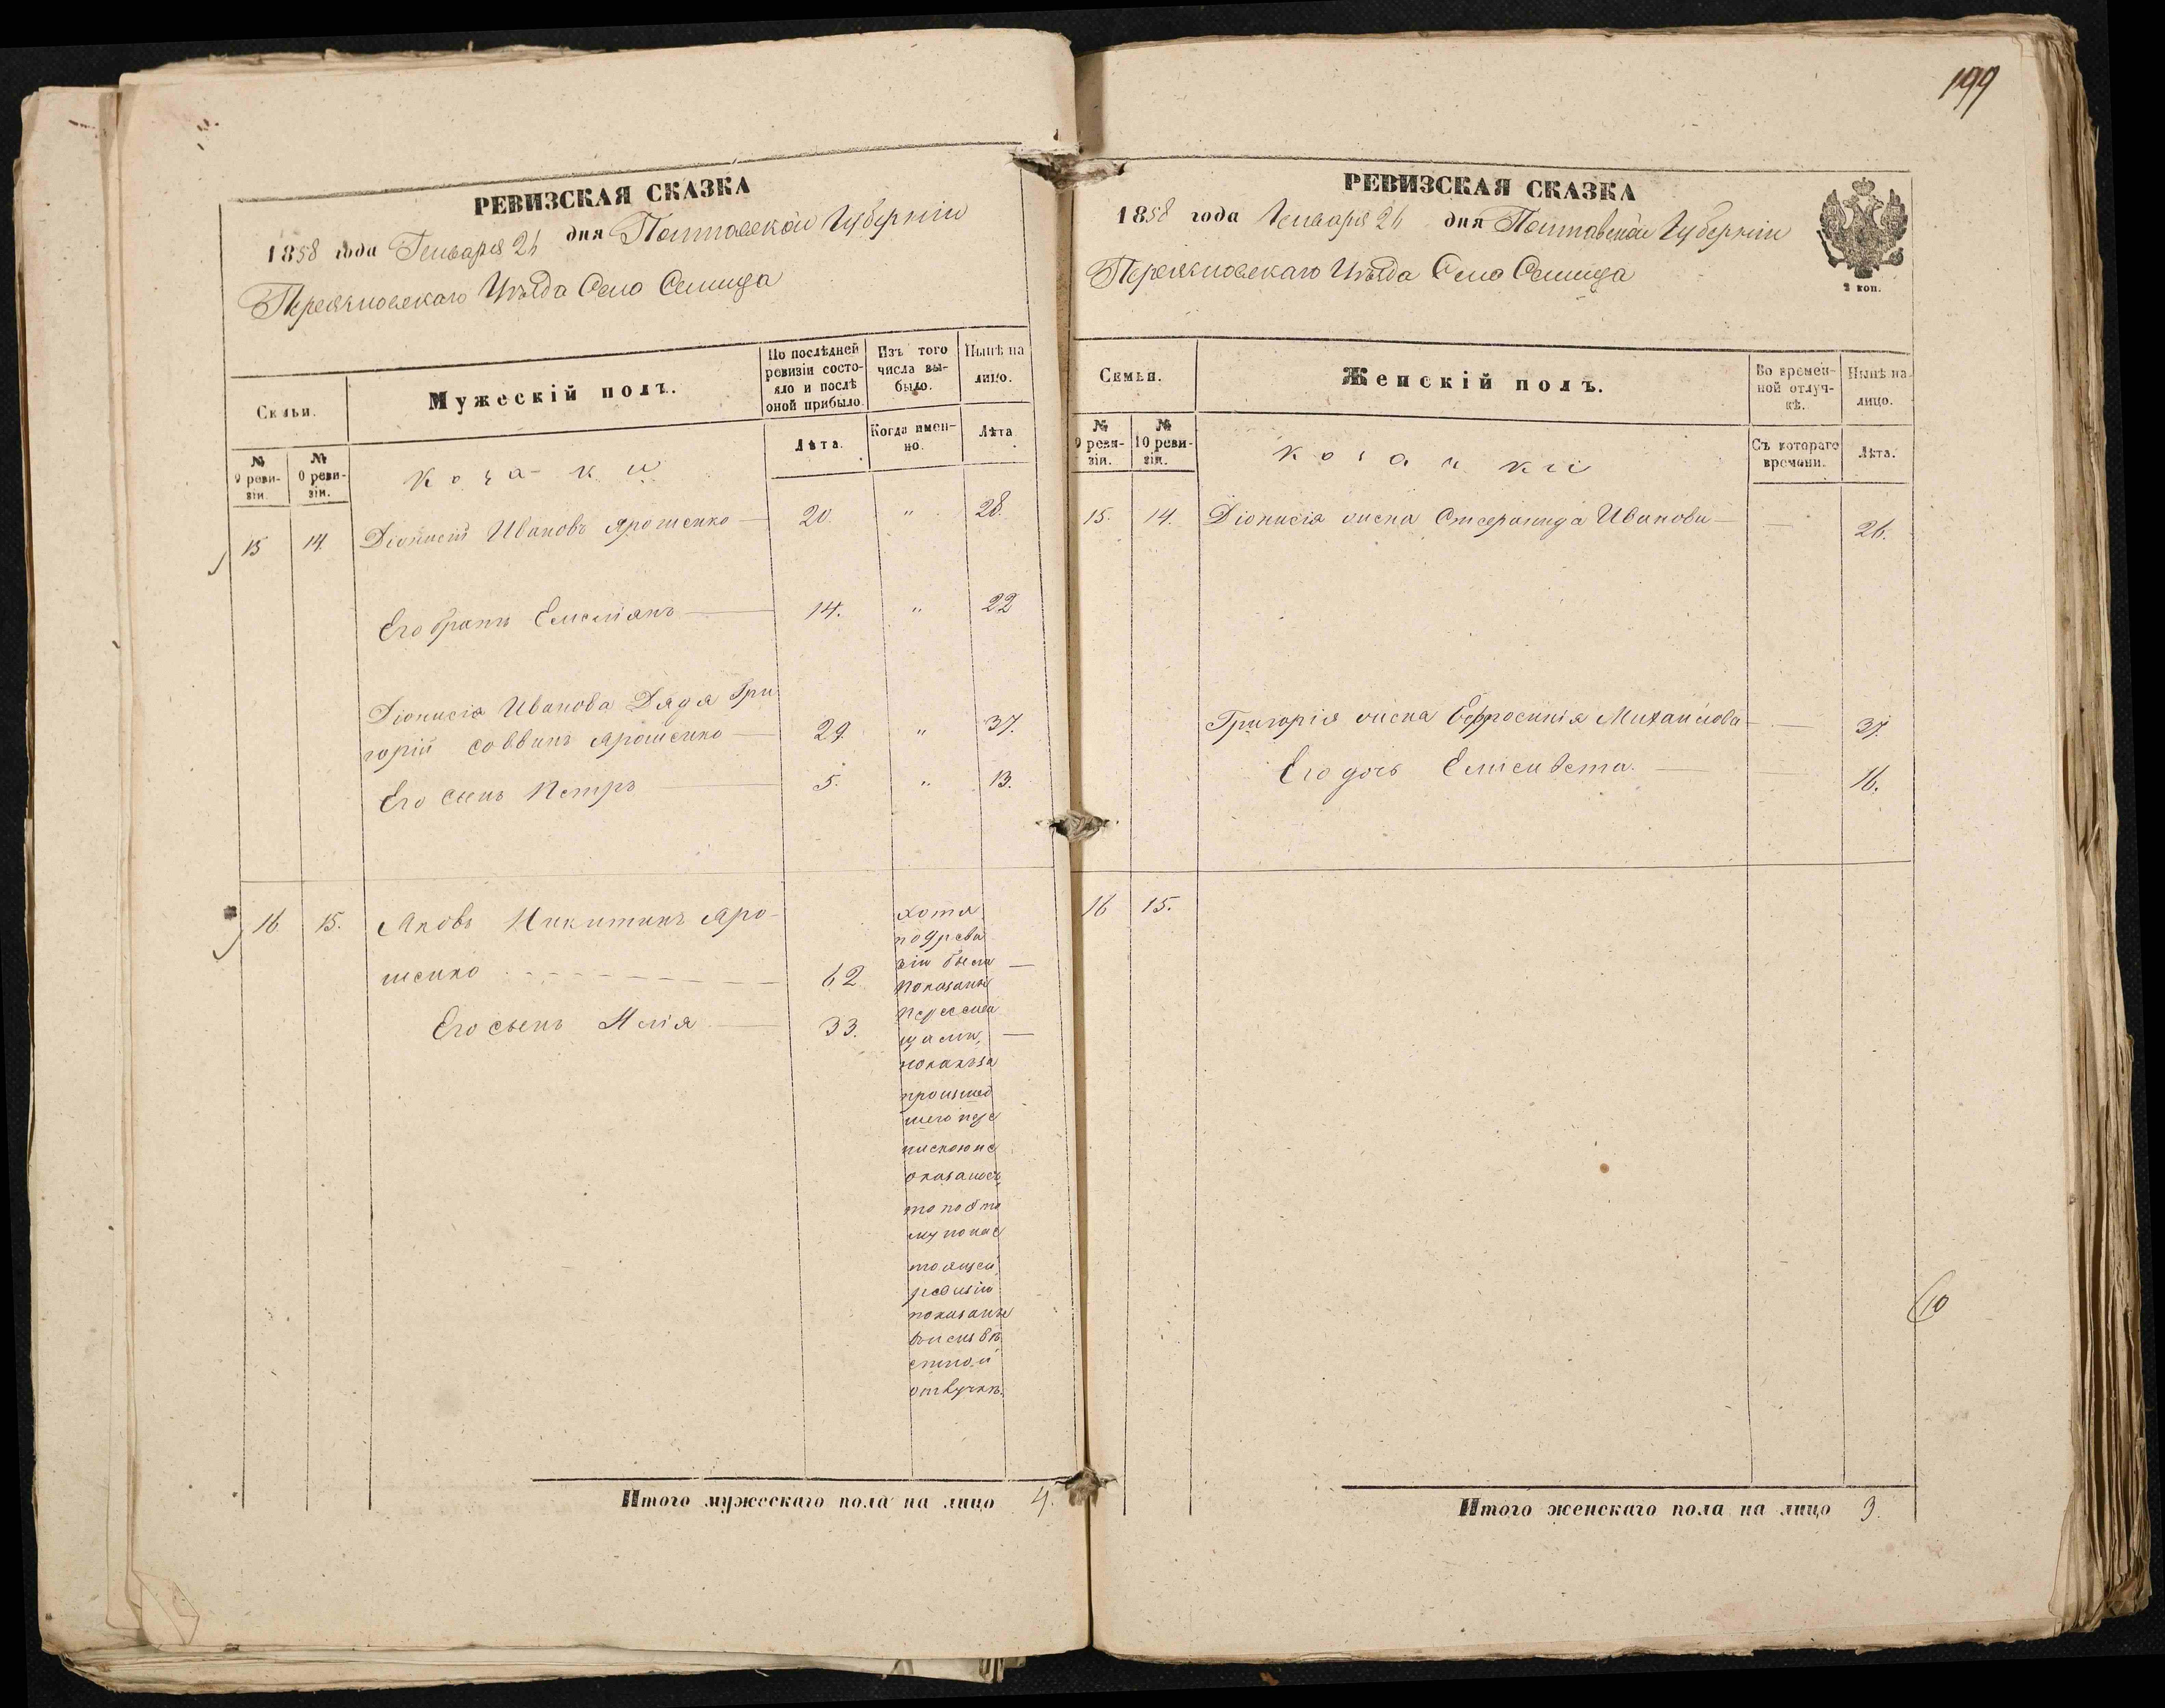 199
РЕВИЗСКАЯ СКАЗКА
1858 года Генваря 26 дня Полтавской Губерніи
Переяславскаго Уѣзда Село Семища
Семьи.
Мужескій полъ.
По послѣдней ревизіи состояло и послѣ оной прибыло.
Изъ того числа выбыло.
Нынѣ на лицо.
№ 9 ревизіи.
№ 10 ревизіи.
Лѣта.
Когда именно.
Лѣта
Козаки
15 14. Діонисій Ивановъ Ярошенко 20. " 28.
Его братъ Емеліянъ 14. " 22
Діонисія Иванова Дядя Гри
горій Саввинъ Ярошенко 29. " 37.
Его сынъ Петръ 5. " 13.
16. 15. Яковъ Никитинъ Яро-
шенко 62
Его сынъ Илія 33.
хотя
по 9 реви
зіи были
показаны
пересел
щами,
но какъ за
произшед
шею пере
пискою не
оказалось,
то по сто
му по нас
тоящей
ревизіи
показаны
въ неизвѣ
стной
отлучкѣ.
Итого мужескаго пола на лицо 4.
РЕВИЗСКАЯ СКАЗКА
1858 года Генваря 26 дня Полтавской Губерніи
Переяславскаго Уѣзда Село Семища
2 коп.
Семьи.
Женскій полъ.
Во временной отлучкѣ.
Нынѣ на лицо.
№ 9 ревизіи.
№ 10 ревизіи.
Съ котораго времени.
Лѣта.
Козачки
15. 14. Діонисія жена Иванова 26.
Григорія жена Ефросинія Михайлова 37.
Его дочь Елисавета. 16.
16 15.
10
Итого женскаго пола на лицо 3.